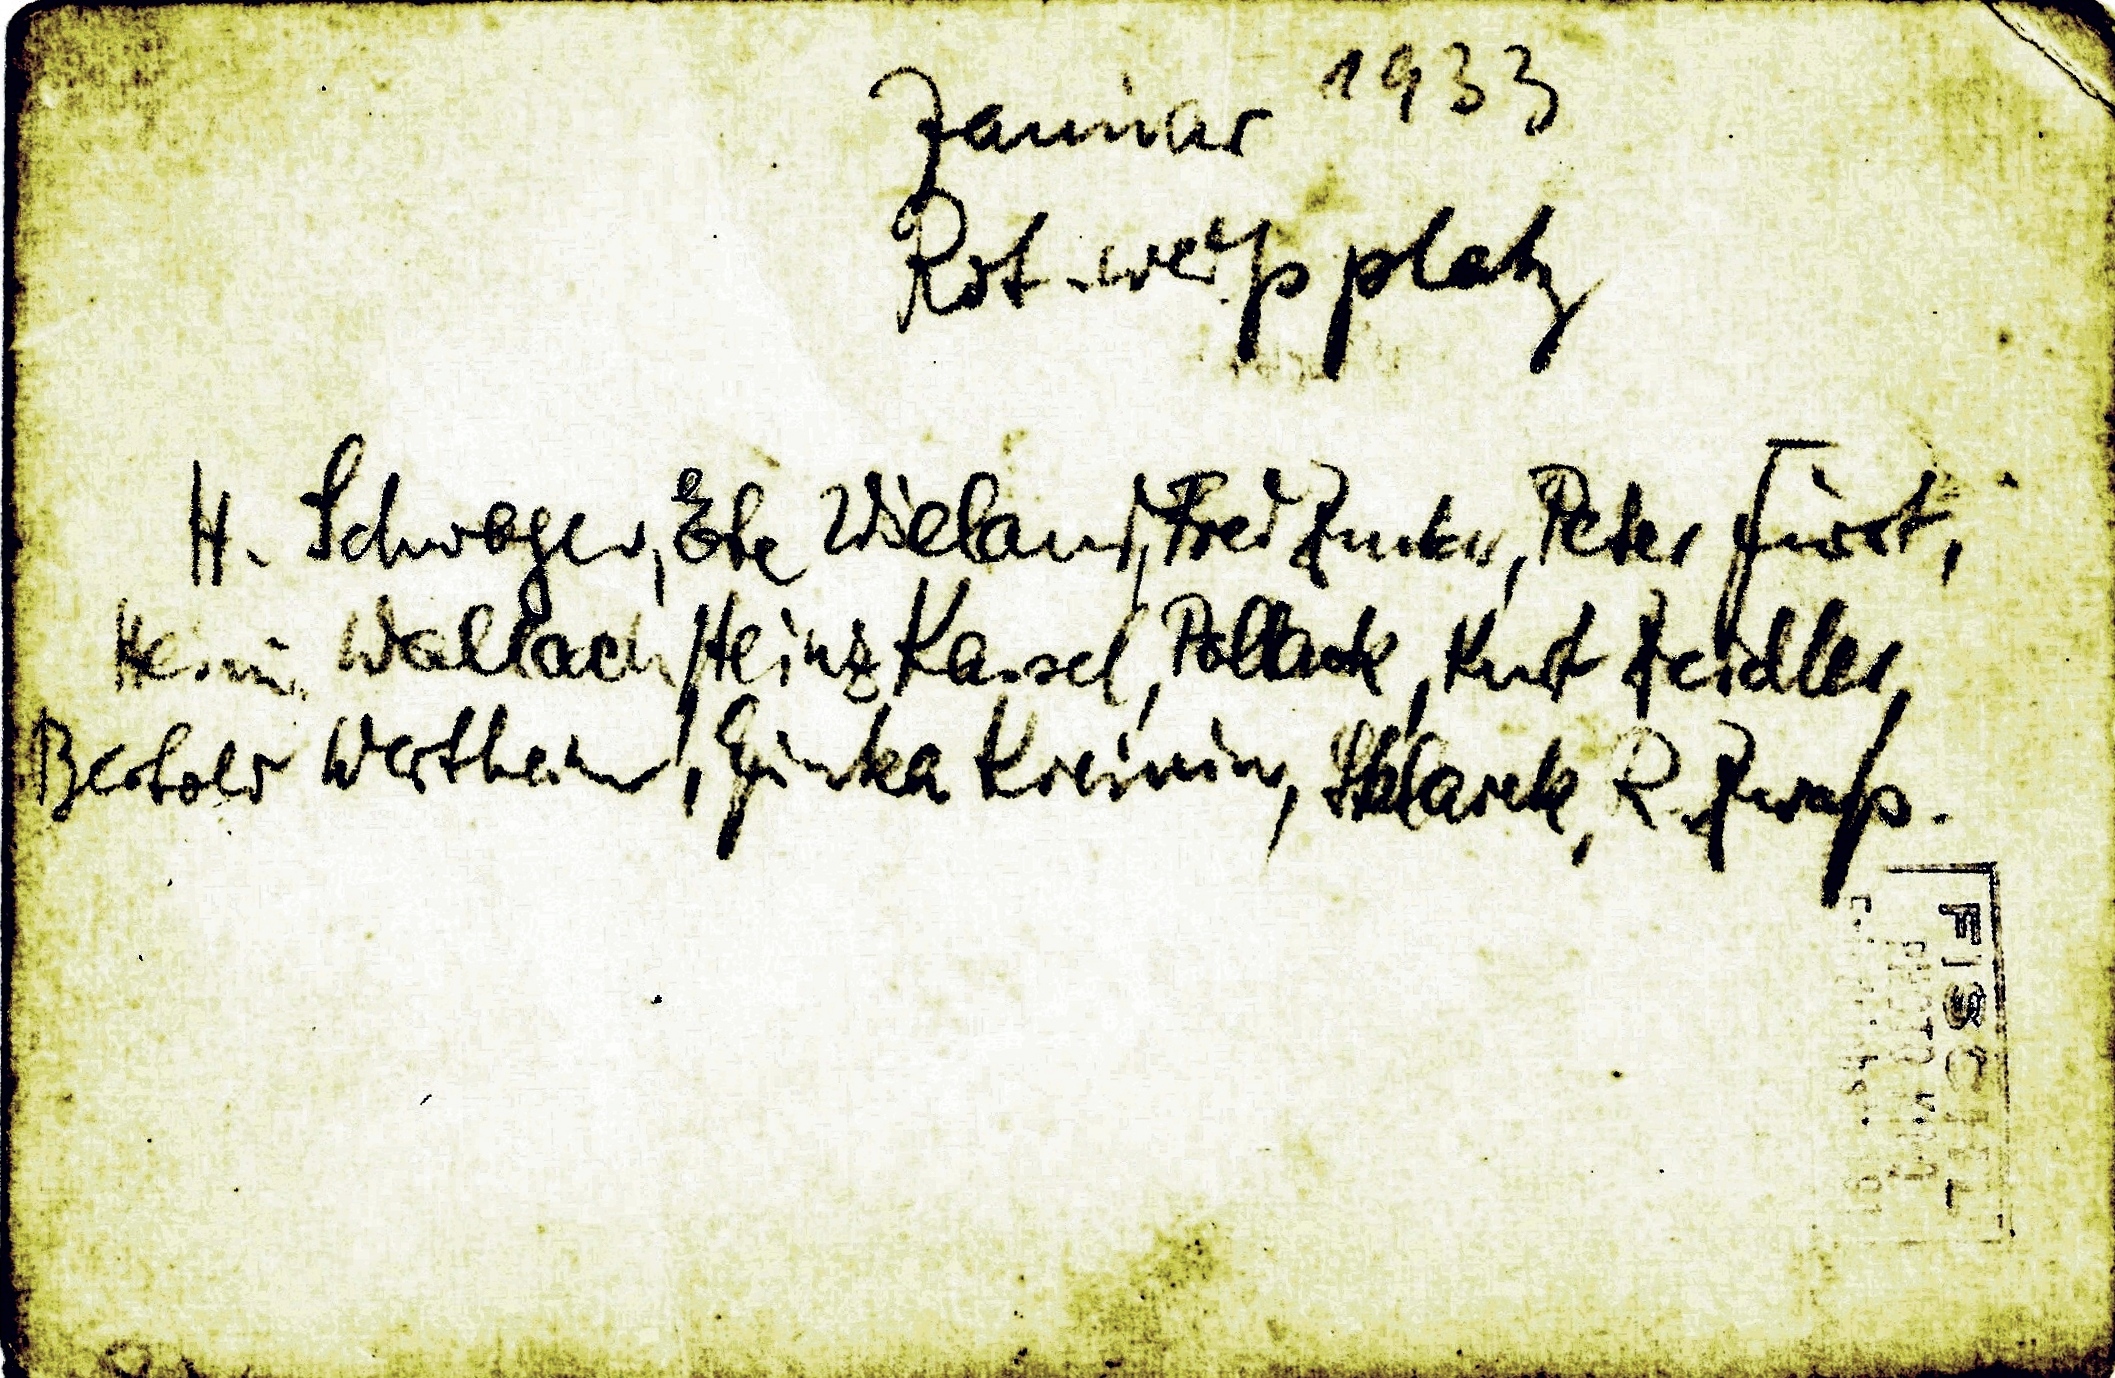 Januar 1933
Rot-weiß platz
H. Schwager, Ete Wieland, Fred Zunker, Peter Fürst,
Heini Wallach, Heinz Kassel, Pollack, Kurt Zeidler,
Bertold Wertheim, Ginka Kreinin, Sklarek, R. Zwaß.
FISCH